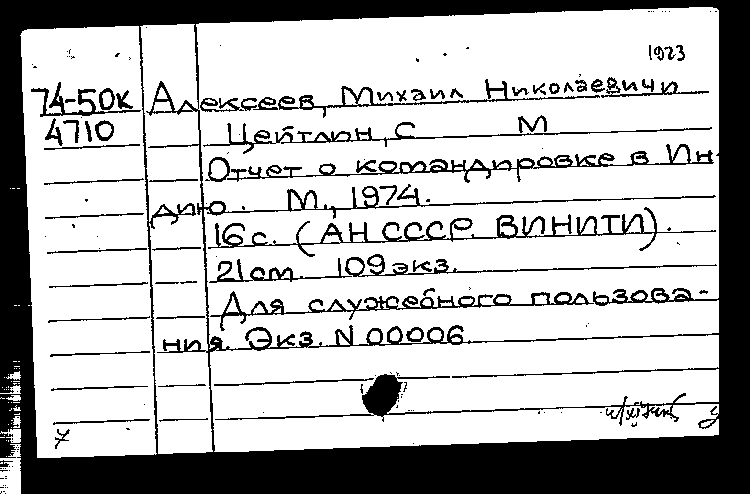 1923
74-50к Алексеев, Михаил Николаевич и
4710 Цейтлин, С М
Отчет о командировке в Ин-
дию. М., 1974.
16 с. (АН СССР. ВИНИТИ).
21 см. 109 экз.
Для служебного пользова-
ния. Экз. N 00006.
7